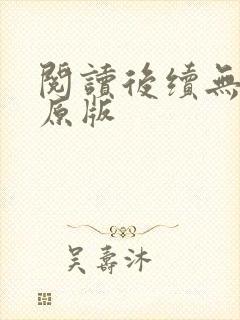 閱讀後續無
原版
吴壽沐